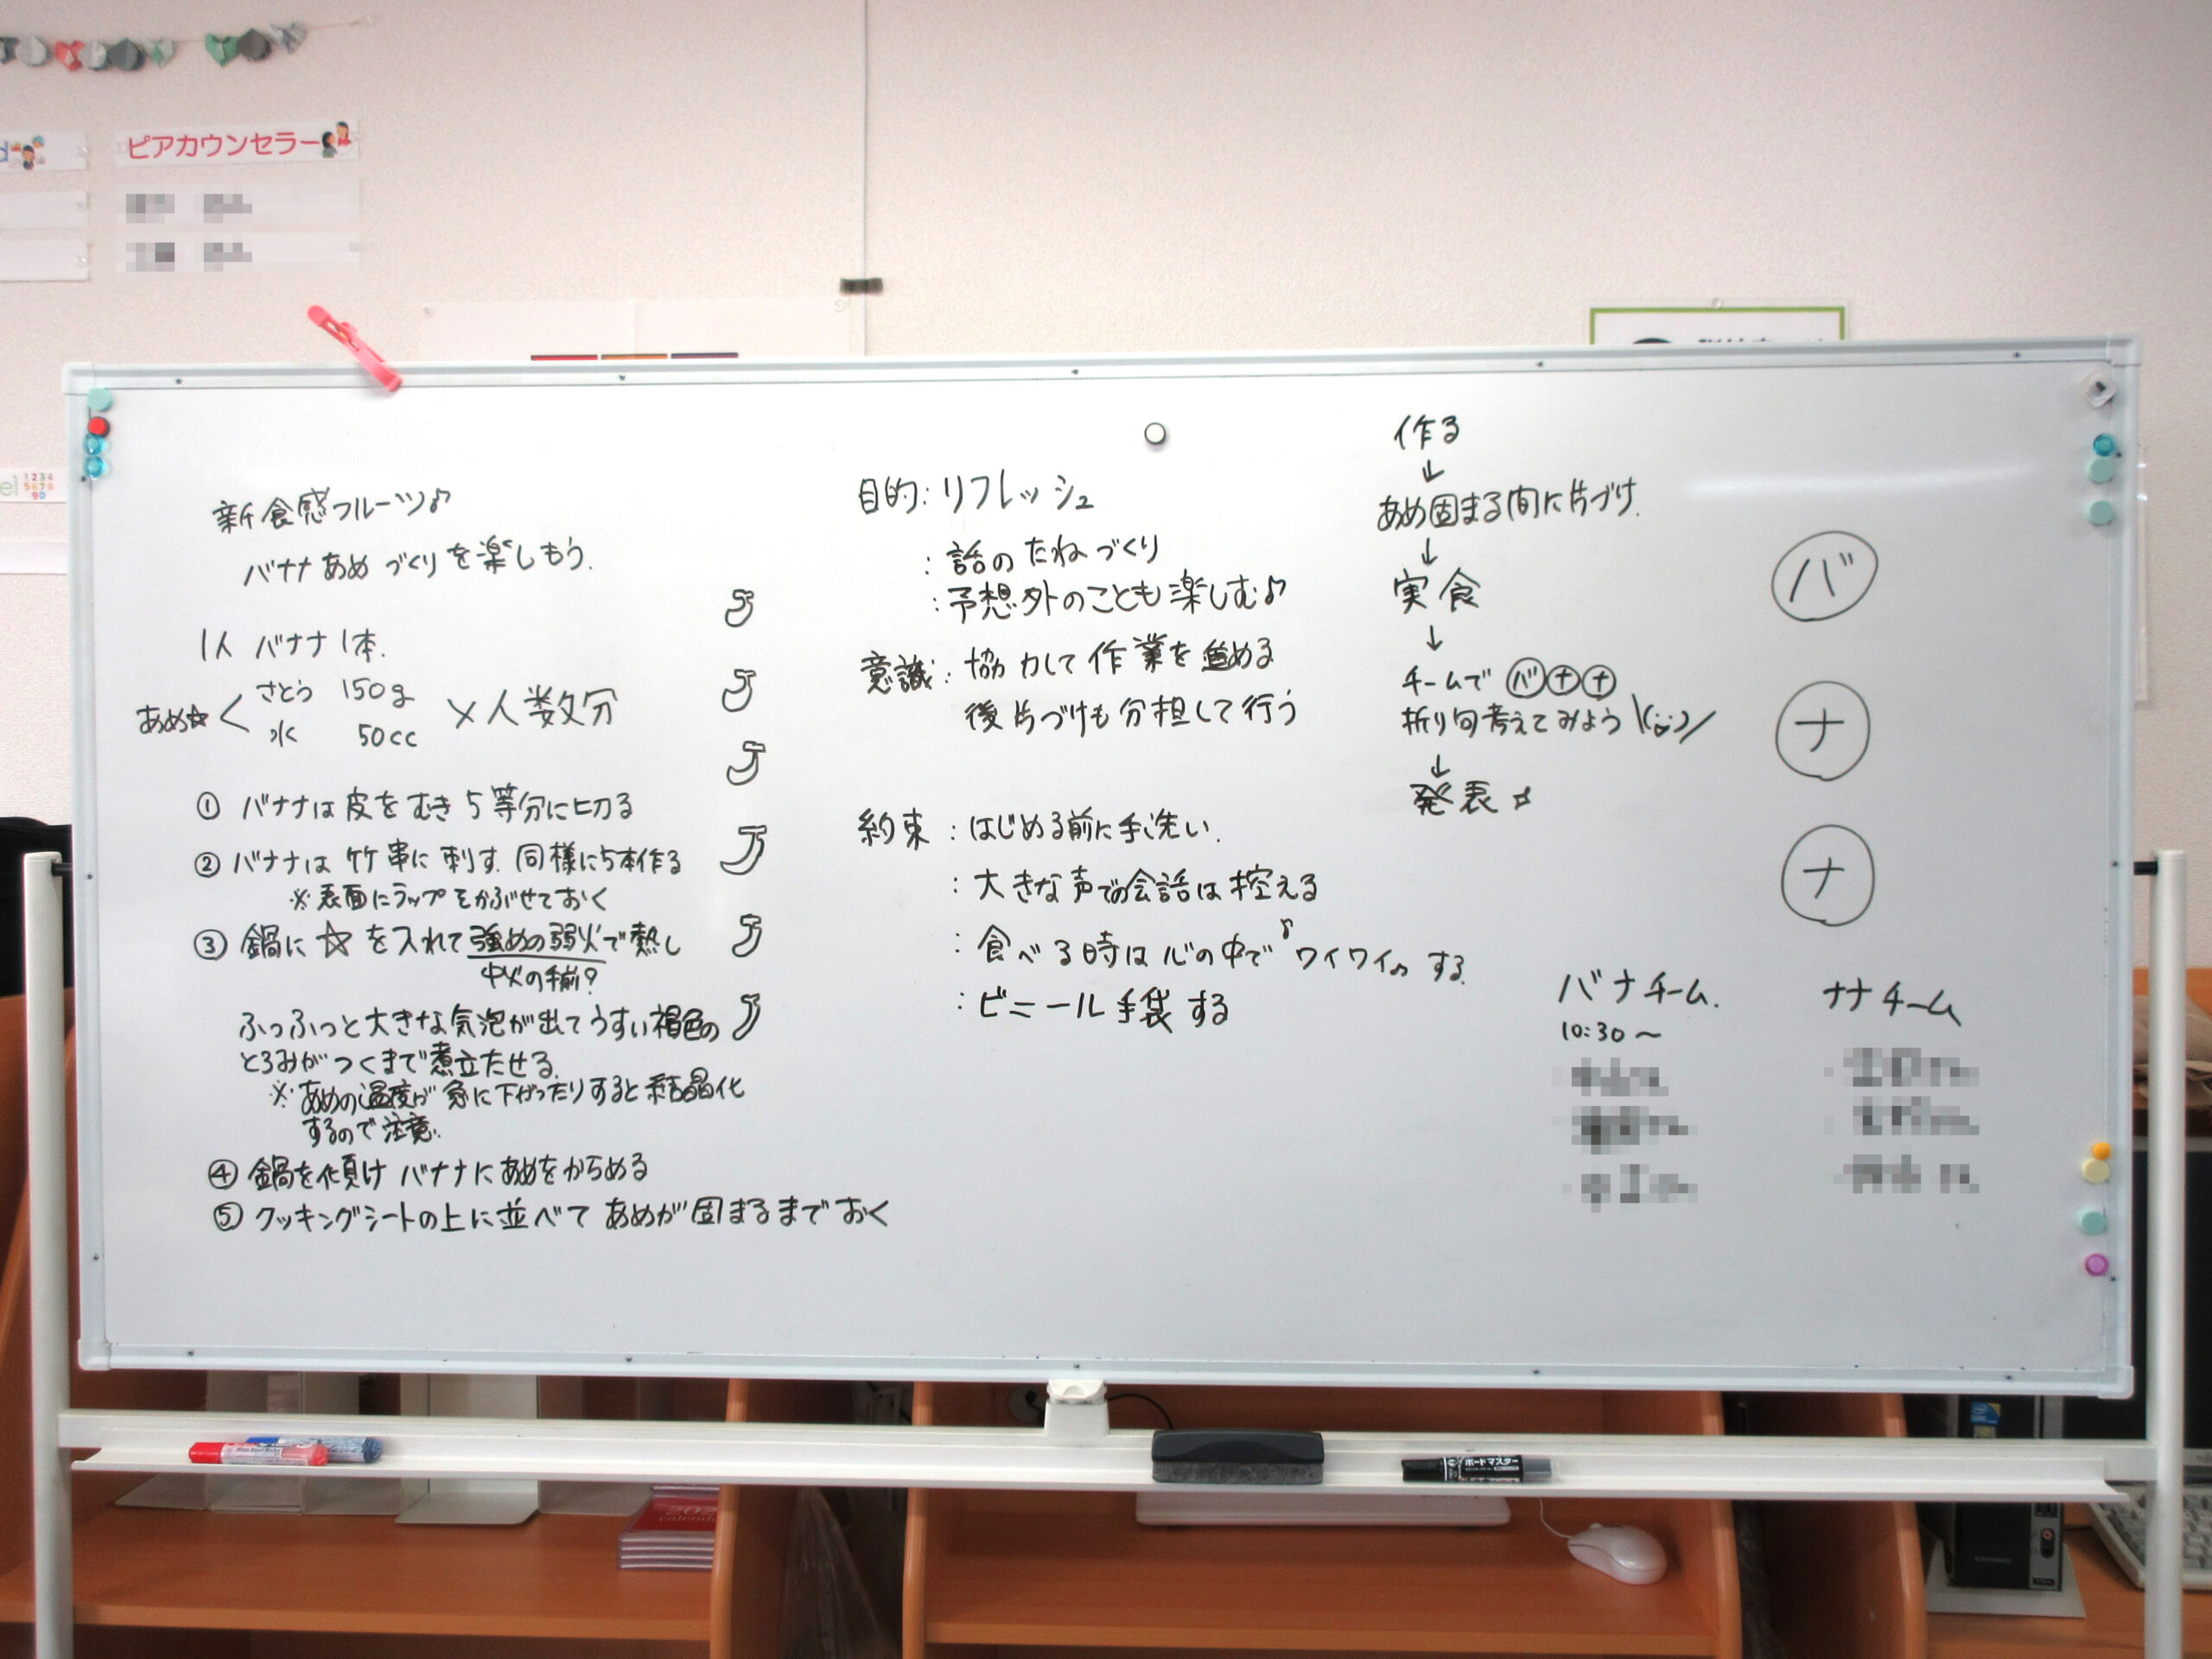 ピアカウンセラー
新食感フルーツ♪
バナナあめづくりを楽しもう.
1人 バナナ 1本.
あめ☆ < さとう 150g
水 50cc
×人数分
① バナナは皮をむき5等分に切る
② バナナは竹串に刺す. 同様に5本作る
※表面にラップをかぶせておく
③ 鍋に☆を入れて強めの弱火で熱し
中火の手前?
ふつふつと大きな気泡が出てうすい褐色の
とろみがつくまで煮立たせる.
※あめの温度が急に下がったりすると結晶化
するので注意.
④ 鍋を傾けバナナにあめをからめる
⑤ クッキングシートの上に並べてあめが固まるまでおく
目的: リフレッシュ
: 話のたねづくり
: 予想外のことも楽しむ♪
意識: 協力して作業を進める
後片づけも分担して行う
約束: はじめる前に手洗い.
: 大きな声での会話は控える
: 食べる時は心の中で♪ワイワイ♪する.
: ビニール手袋する
作る
↓
あめ固まる間に片づけ.
↓
実食
↓
チームで バ ナ ナ
折り句考えてみよう \(¨)/
↓
発表☆
バ
ナ
ナ
バナチーム.
10:30〜
ナナチーム
ボードマスター
1234
5678
90
calendar